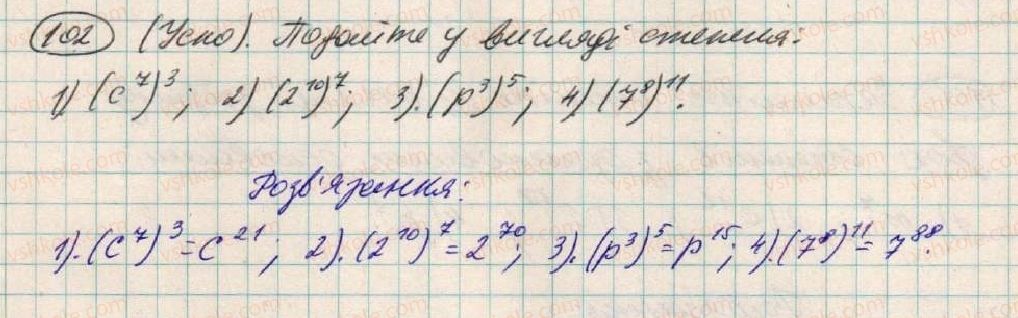 102 (Усно). Подайте у вигляді степеня:
1) (c⁷)³; 2) (2¹⁰)⁷; 3). (p³)⁵; 4) (7⁸)¹¹.
Розв'язання:
1). (c⁷)³ = c²¹; 2). (2¹⁰)⁷ = 2⁷⁰; 3). (p³)⁵ = p¹⁵; 4). (7⁸)¹¹ = 7⁸⁸.